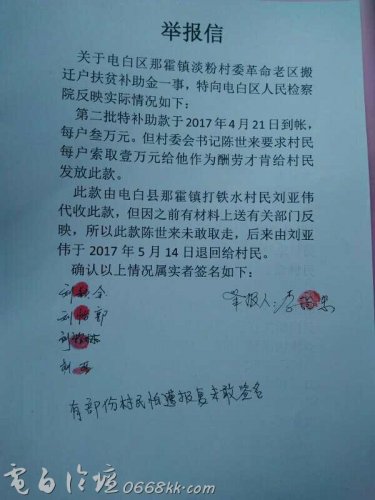 举报信
关于电白区那霍镇淡粉村委革命老区搬
迁户扶贫补助金一事，特向电白区人民检察
院反映实际情况如下：
第二批特补助款于2017年4月21日到帐，
每户叁万元。但村委会书记陈世来要求村民
每户索取壹万元给他作为酬劳才肯给村民
发放此款。
此款由电白县那霍镇打铁水村民刘亚伟
代收此款，但因之前有材料上送有关部门反
映，所以此款陈世来未敢取走，后来由刘亚
伟于2017年5月14日退回给村民。
确认以上情况属实者签名如下：
举报人：
有部份村民怕遭报复未敢签名
电白论坛0668kk.com